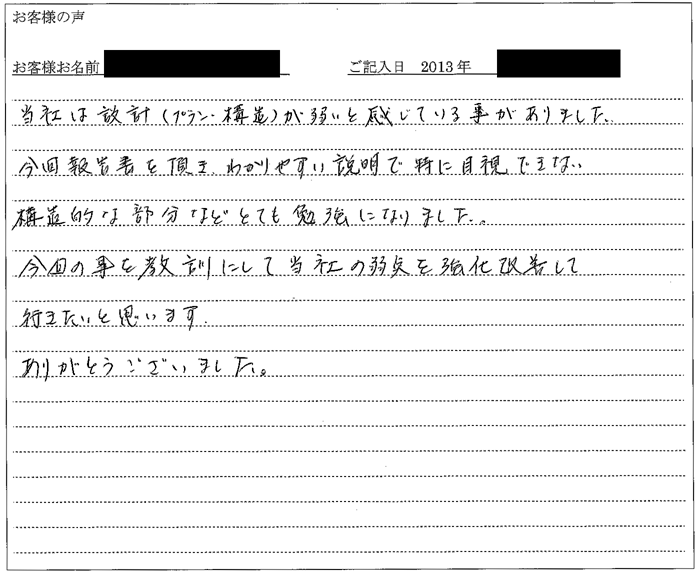 お客様の声
お客様お名前 ご記入日 2013年
当社は設計(プラン・構造)が弱いと感じている事がありました。
今回報告書を頂き わかりやすい説明で特に目視できない
構造的な部分などとても勉強になりました。
今回の事を教訓にして当社の弱点を強化改善して
行きたいと思います.
ありがとうございました。